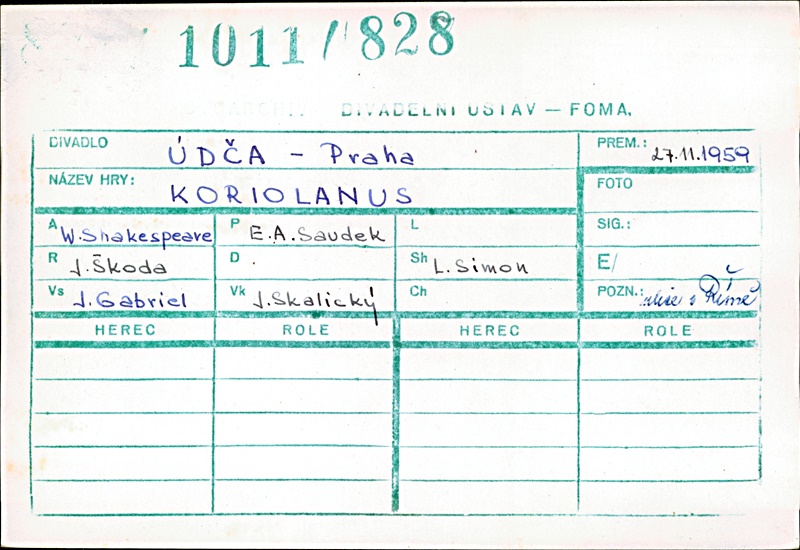 1011/828
DIVADELNÍ ÚSTAV — FOMA.
DIVADLO ÚDČA - Praha PREM.: 27.11.1959
NÁZEV HRY: KORIOLANUS FOTO
A W.Shakespeare P E.A.Saudek L SIG.:
R J.Škoda D . Sh L.Simon E/
Vs J.Gabriel Vk J.Skalický Ch POZN.: v Římě
HEREC ROLE HEREC ROLE